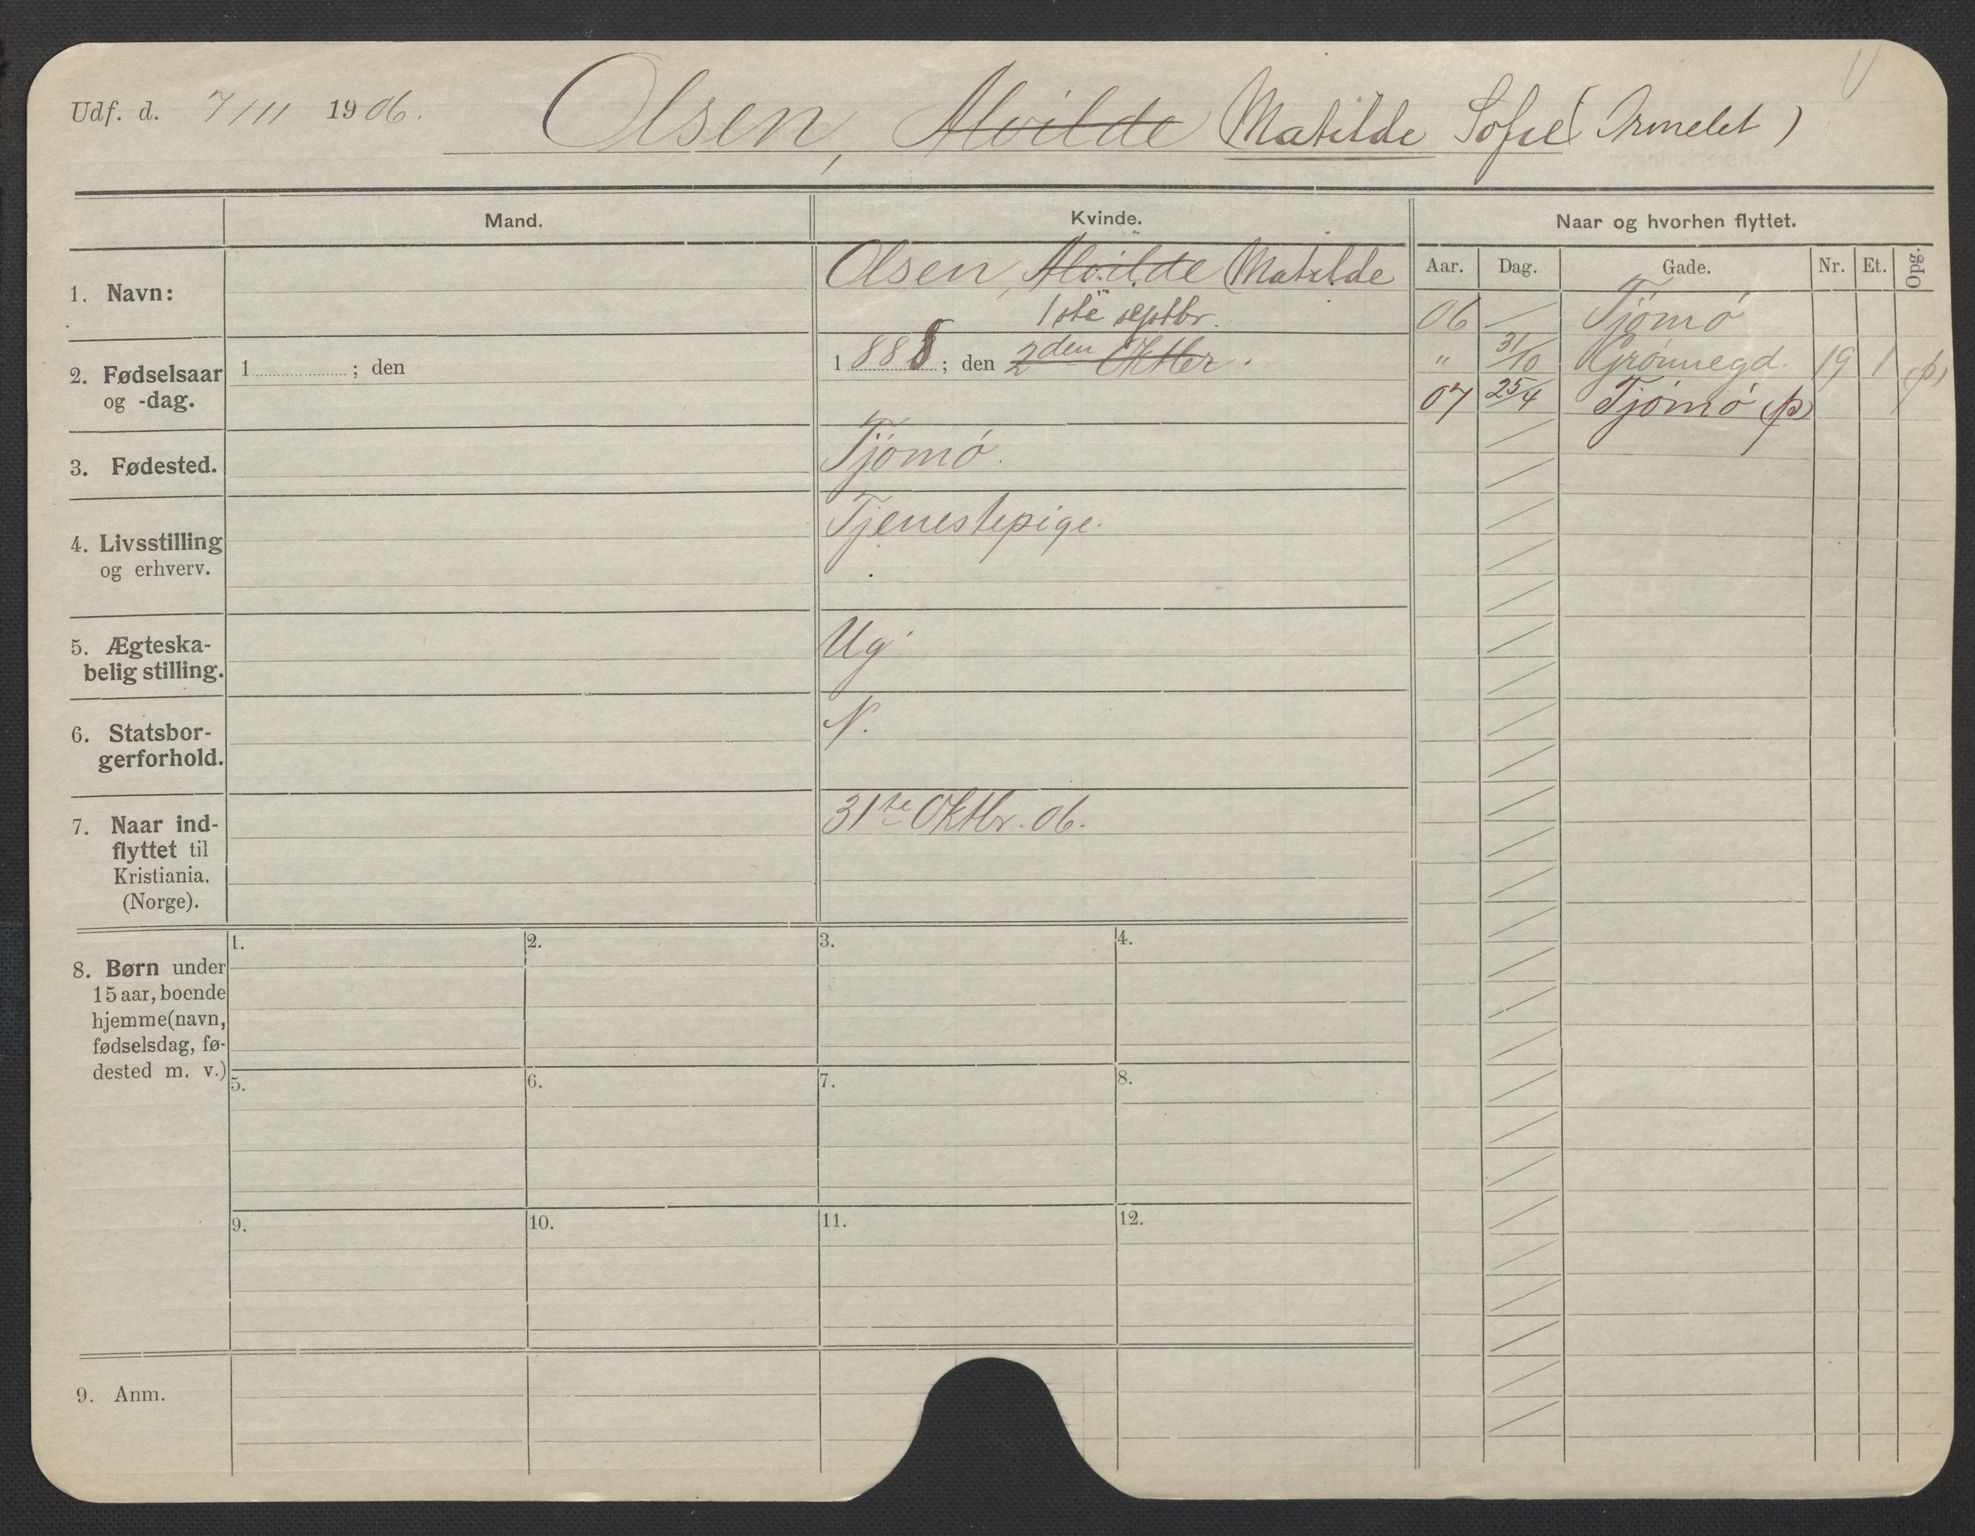 Udf. d. 7/11 1906. Olsen, Alvilde Matilde Sofie ( )
Mand. Kvinde. Naar og hvorhen flyttet.
Aar. Dag. Gade. Nr. Et. Opg.
1. Navn: Olsen, Alvilde Matilde
1ste septbr.
2. Fødselsaar og -dag.
1 ; den
1888; den 2den Oktbr.
3. Fødested. Tjømø.
4. Livsstilling og erhverv. Tjenestepige.
5. Ægteska-
belig stilling. Ug
6. Statsbor-
gerforhold. N.
7. Naar ind-
flyttet til
Kristiania.
(Norge).
31te Oktbr. 06.
06 Tjømø
" 31/10 Grønnegd. 19 1 (p)
07 25/4 Tjømø (p)
8. Børn under
15 aar, boende
hjemme (navn,
fødselsdag, fø-
dested m. v.)
1. 2. 3. 4.
5. 6. 7. 8.
9. 10. 11. 12.
9. Anm.